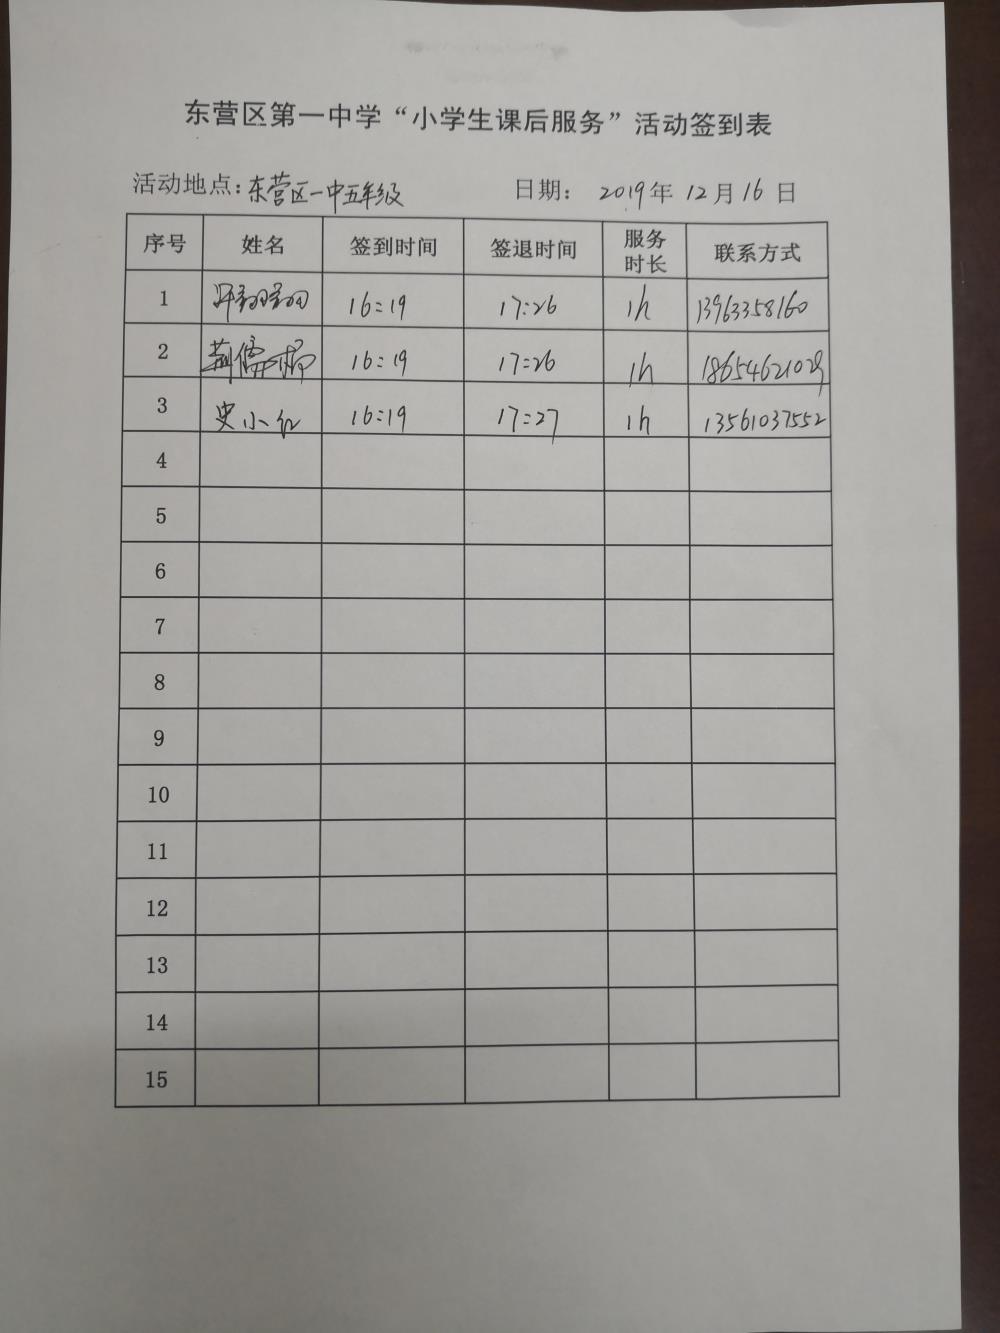 东营区第一中学“小学生课后服务”活动签到表
活动地点：东营区一中五年级 日期： 2019年 12月 16日
序号 姓名 签到时间 签退时间 服务时长 联系方式
1 16:19 17:26 1h 13963358160
2 16:19 17:26 1h 18654621029
3 史小红 16:19 17:27 1h 13561037552
4
5
6
7
8
9
10
11
12
13
14
15